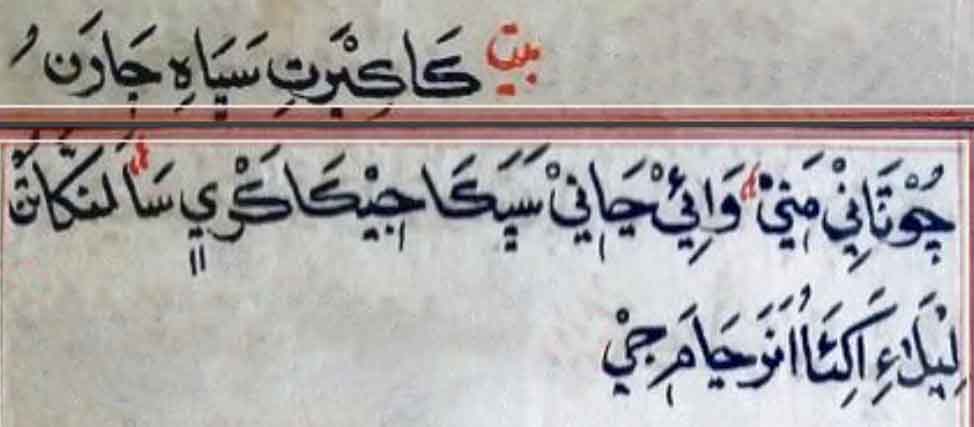 بيت كَاكِبْرَتِ سَيَاهِ جَارَن
جُوْتَانِيْ مَنِيْ وَائِيْ جَانِيْ سَيِكَا جِيْكَا كَرْيِ سَا لنكَان
لِيْلَاءِ اَكِئَا اُنَرَ جَامَ جِيْ